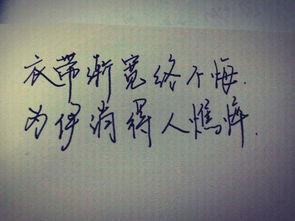 衣带渐宽终不悔.
为伊消得人憔悴.